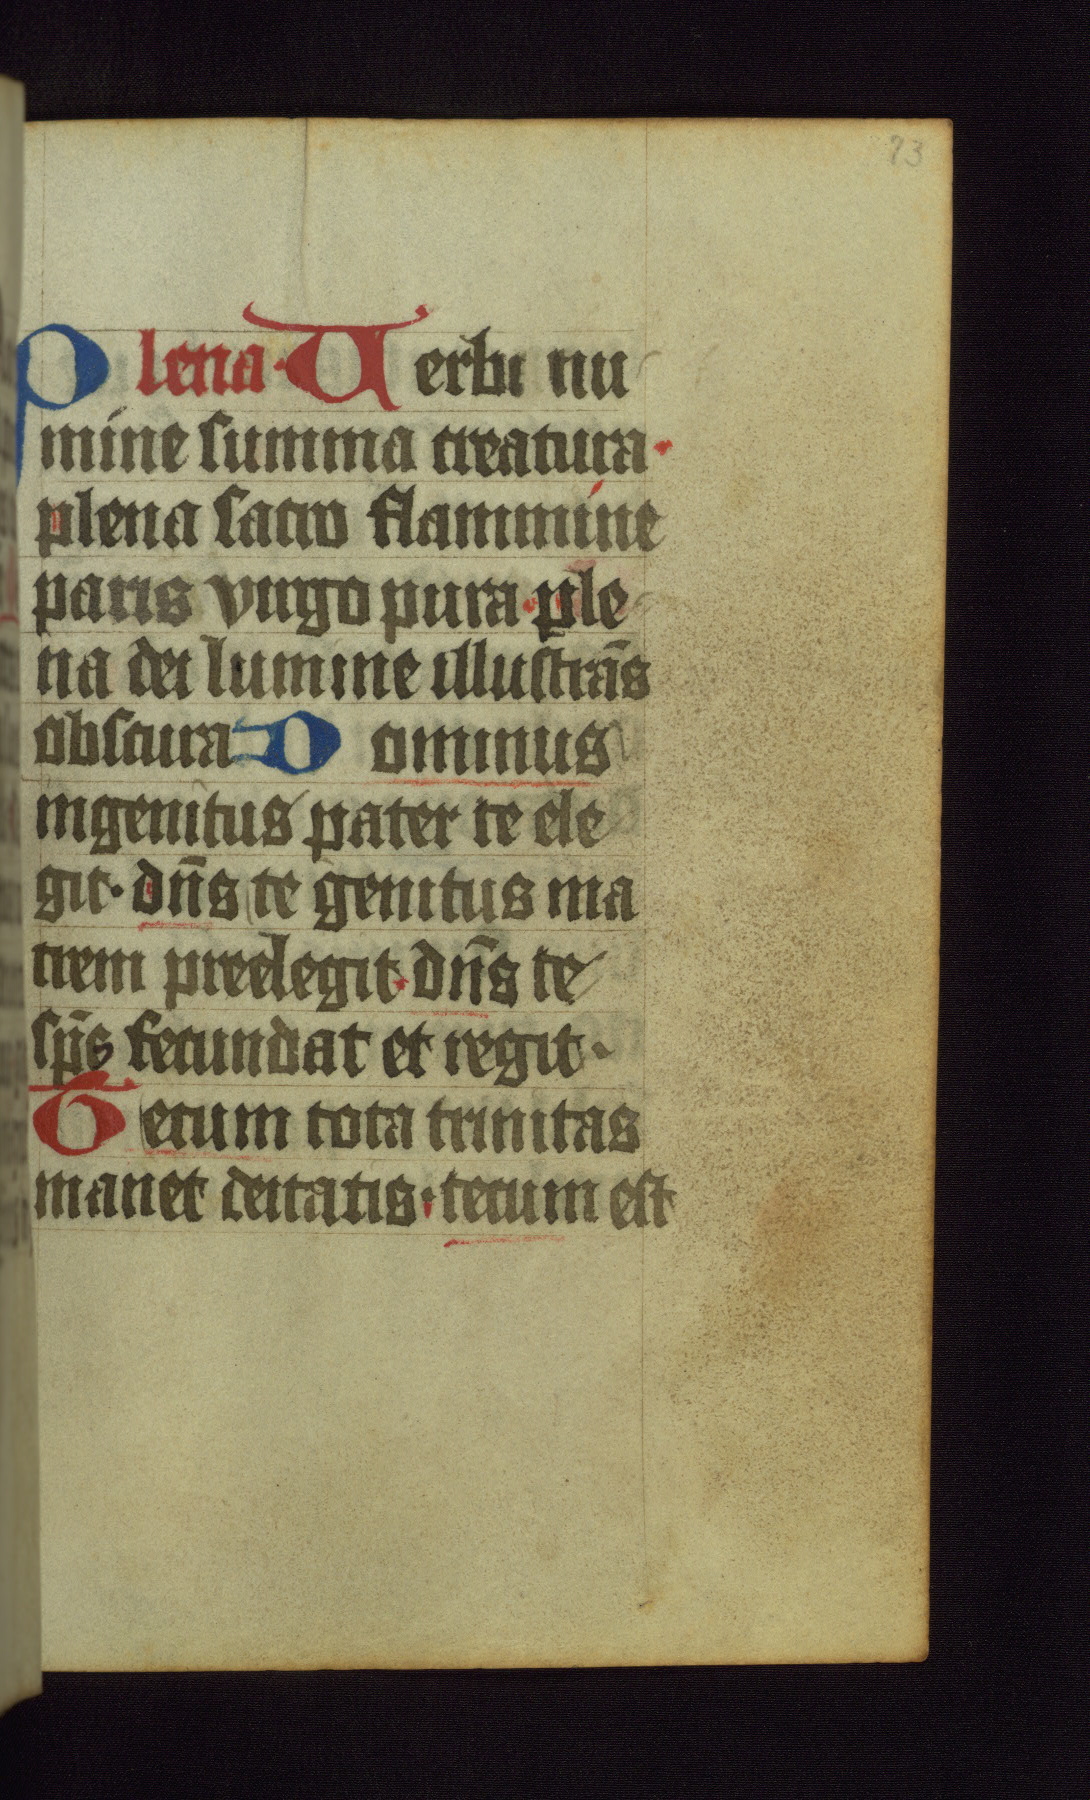 73
Plena · Verbi nu
mine summa creatura ·
plena sacro flammine
paris virgo pura · ple
na dei lumine illustrās
obscura Dominus
ingenitus pater te ele
git · dn̄s te genitus ma
trem preelegit · dn̄s te
sp̄s fecundat et regit ·
Tecum tota trinitas
manet deitatis · tecum est